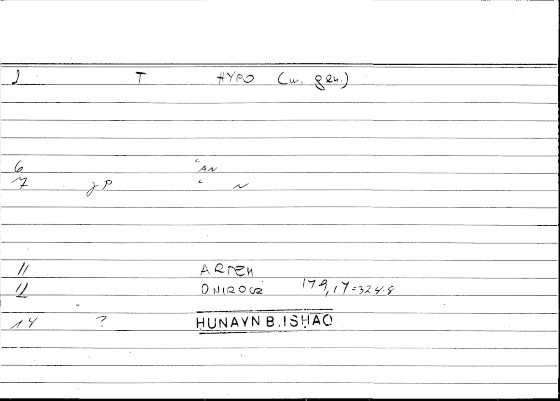 1 T HYPO (w. gen.)
6 ʿAN
7 γP ʿ N
11 ARTEM
12 ONIROCR 179,17=324.8
14 ? HUNAYN B.ISHAQ